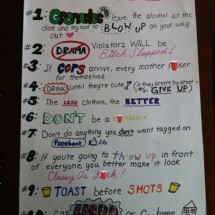 #1: Gentle leave the alcohol at
the door and try not to BLOW UP on your way
out
#2: DRAMA Violators WILL BE
Bitch Slapped!
#3: If COPS arrive, every mother
for themselves.
#4: DRINK until they're cute (if they aren't by shot
#5: The LESS clothes, the BETTER
#6: DON'T be a
#7: Don't do anything you don't want tagged on
facebook
#8: If you're going to throw up in front of
everyone, you better make it look
Classy As
#9: TOAST before SHOTS
#10: